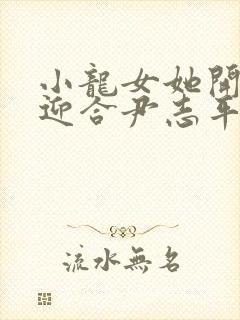 小龍女她開
迎合尹志平
流水無名